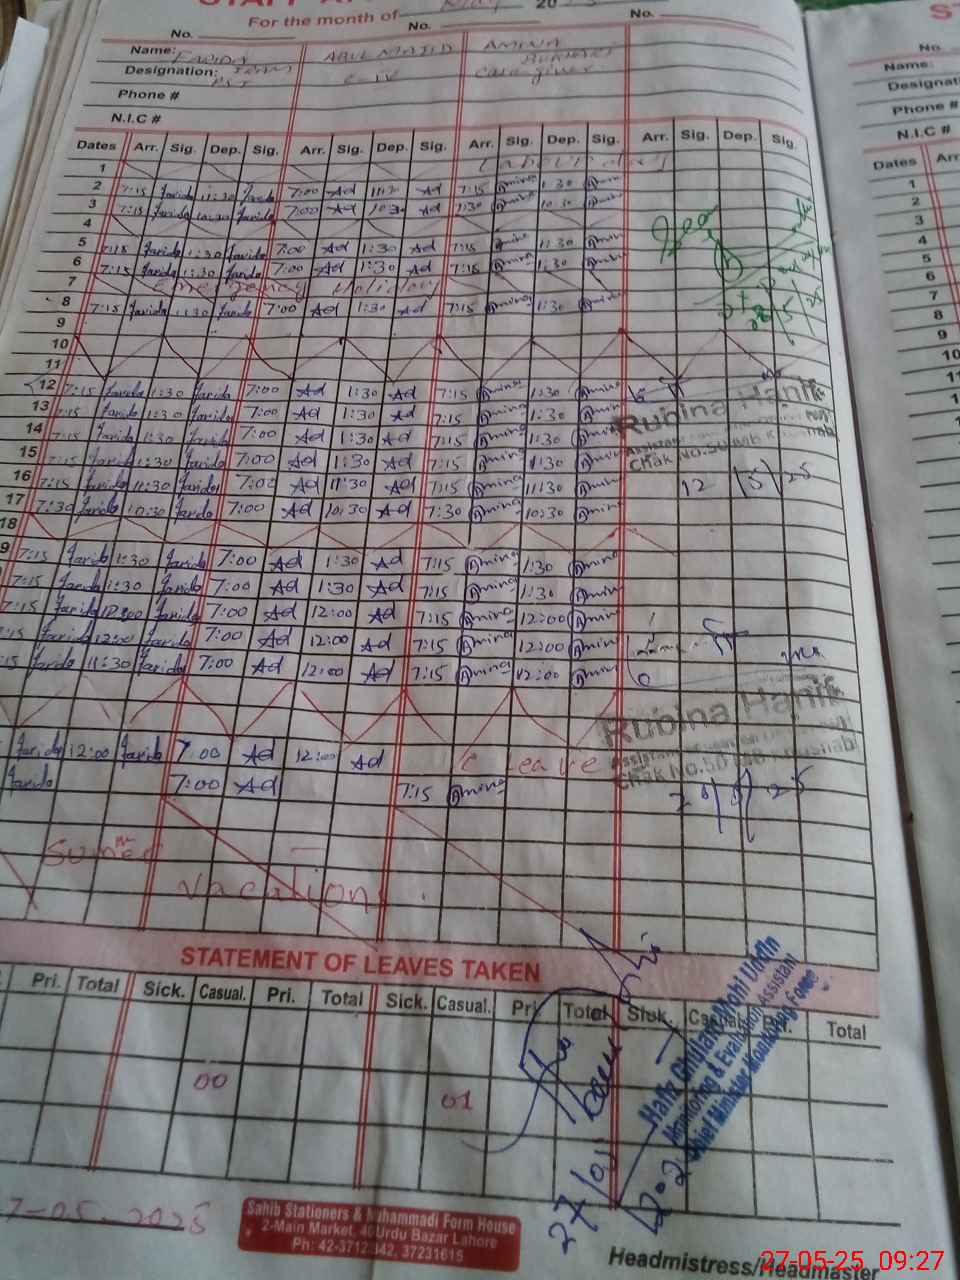 STAFF
For the month of May 20
No. No. No.
Name: FARIDA ABUL MAJID AMINA
Designation: PST C-IV Care giver
Phone #
N.I.C #
Dates Arr. Sig. Dep. Sig. Arr. Sig. Dep. Sig. Arr. Sig. Dep. Sig. Arr. Sig. Dep. Sig.
1 Labour Day
2 7:15 Farida 11:30 Farida 7:00 Ad 11:30 Ad 7:15 Amina 1:30 Amina
3 7:15 Farida 10:30 Farida 7:00 Ad 10:30 Ad 7:30 Amina 10:30 Amina
4
5 7:15 Farida 1:30 Farida 7:00 Ad 1:30 Ad 7:15 Amina 1:30 Amina
6 7:15 Farida 1:30 Farida 7:00 Ad 1:30 Ad 7:15 Amina 1:30 Amina
7 Emergency Holiday
8 7:15 Farida 1:30 Farida 7:00 Ad 1:30 Ad 7:15 Amina 1:30 Amina
9
10
11
12 7:15 Farida 1:30 Farida 7:00 Ad 1:30 Ad 7:15 Amina 1:30 Amina
13 7:15 Farida 1:30 Farida 7:00 Ad 1:30 Ad 7:15 Amina 1:30 Amina
Rubina Hanif
14 7:15 Farida 1:30 Farida 7:00 Ad 1:30 Ad 7:15 Amina 1:30 Amina
15 7:15 Farida 1:30 Farida 7:00 Ad 1:30 Ad 7:15 Amina 1:30 Amina
Chak No.50
16 7:15 Farida 11:30 Farida 7:00 Ad 11:30 Ad 7:15 Amina 11:30 Amina 12/5/25
17 7:30 Farida 10:30 Farida 7:00 Ad 10:30 Ad 7:30 Amina 10:30 Amina
18
9 7:15 Farida 1:30 Farida 7:00 Ad 1:30 Ad 7:15 Amina 1:30 Amina
7:15 Farida 1:30 Farida 7:00 Ad 1:30 Ad 7:15 Amina 1:30 Amina
7:15 Farida 12:00 Farida 7:00 Ad 12:00 Ad 7:15 Amina 12:00 Amina
:15 Farida 12:00 Farida 7:00 Ad 12:00 Ad 7:15 Amina 12:00 Amina
:15 Farida 11:30 Farida 7:00 Ad 12:00 Ad 7:15 Amina 12:00 Amina
Rubina Hanif
Farida 12:00 Farida 7:00 Ad 12:00 Ad C Leave
Chak No.50
Farida 7:00 Ad 7:15 Amina
Summer
Vacation
STATEMENT OF LEAVES TAKEN
Pri. Total Sick. Casual. Pri. Total Sick. Casual. Pri. Total Sick. Casual. Pri. Total
00 01
Hafiz Ghulam Mohi Uddin
Monitoring & Evaluation Assistant
Chief Minister Monitoring Force
7-05-2025
Sahib Stationers & Muhammadi Form House
2-Main Market, 40 Urdu Bazar Lahore
Ph: 42-37122342, 37231615
Headmistress/Headmaster
27-05-25 09:27
S
No.
Name:
Designati
Phone #
N.I.C #
Dates Arr
1
2
3
4
5
6
7
8
9
10